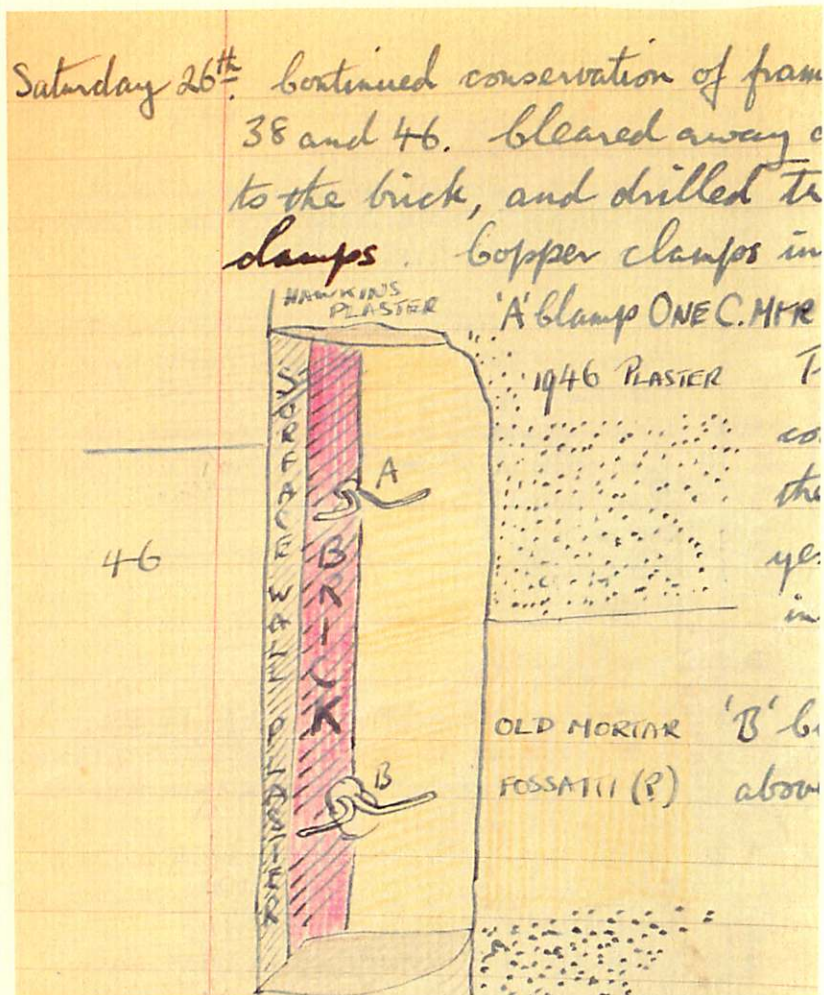 Saturday 26th. Continued conservation of fram
38 and 46. Cleared away
to the brick, and drilled
clamps. Copper clamps in
HAWKINS
PLASTER
'A' Clamp ONE C. MTR
1946 PLASTER
SURFACE WALL PLASTER
BRICK
A
the
46
in
OLD MORTAR 'B'
B
FOSSATTI (?) abov